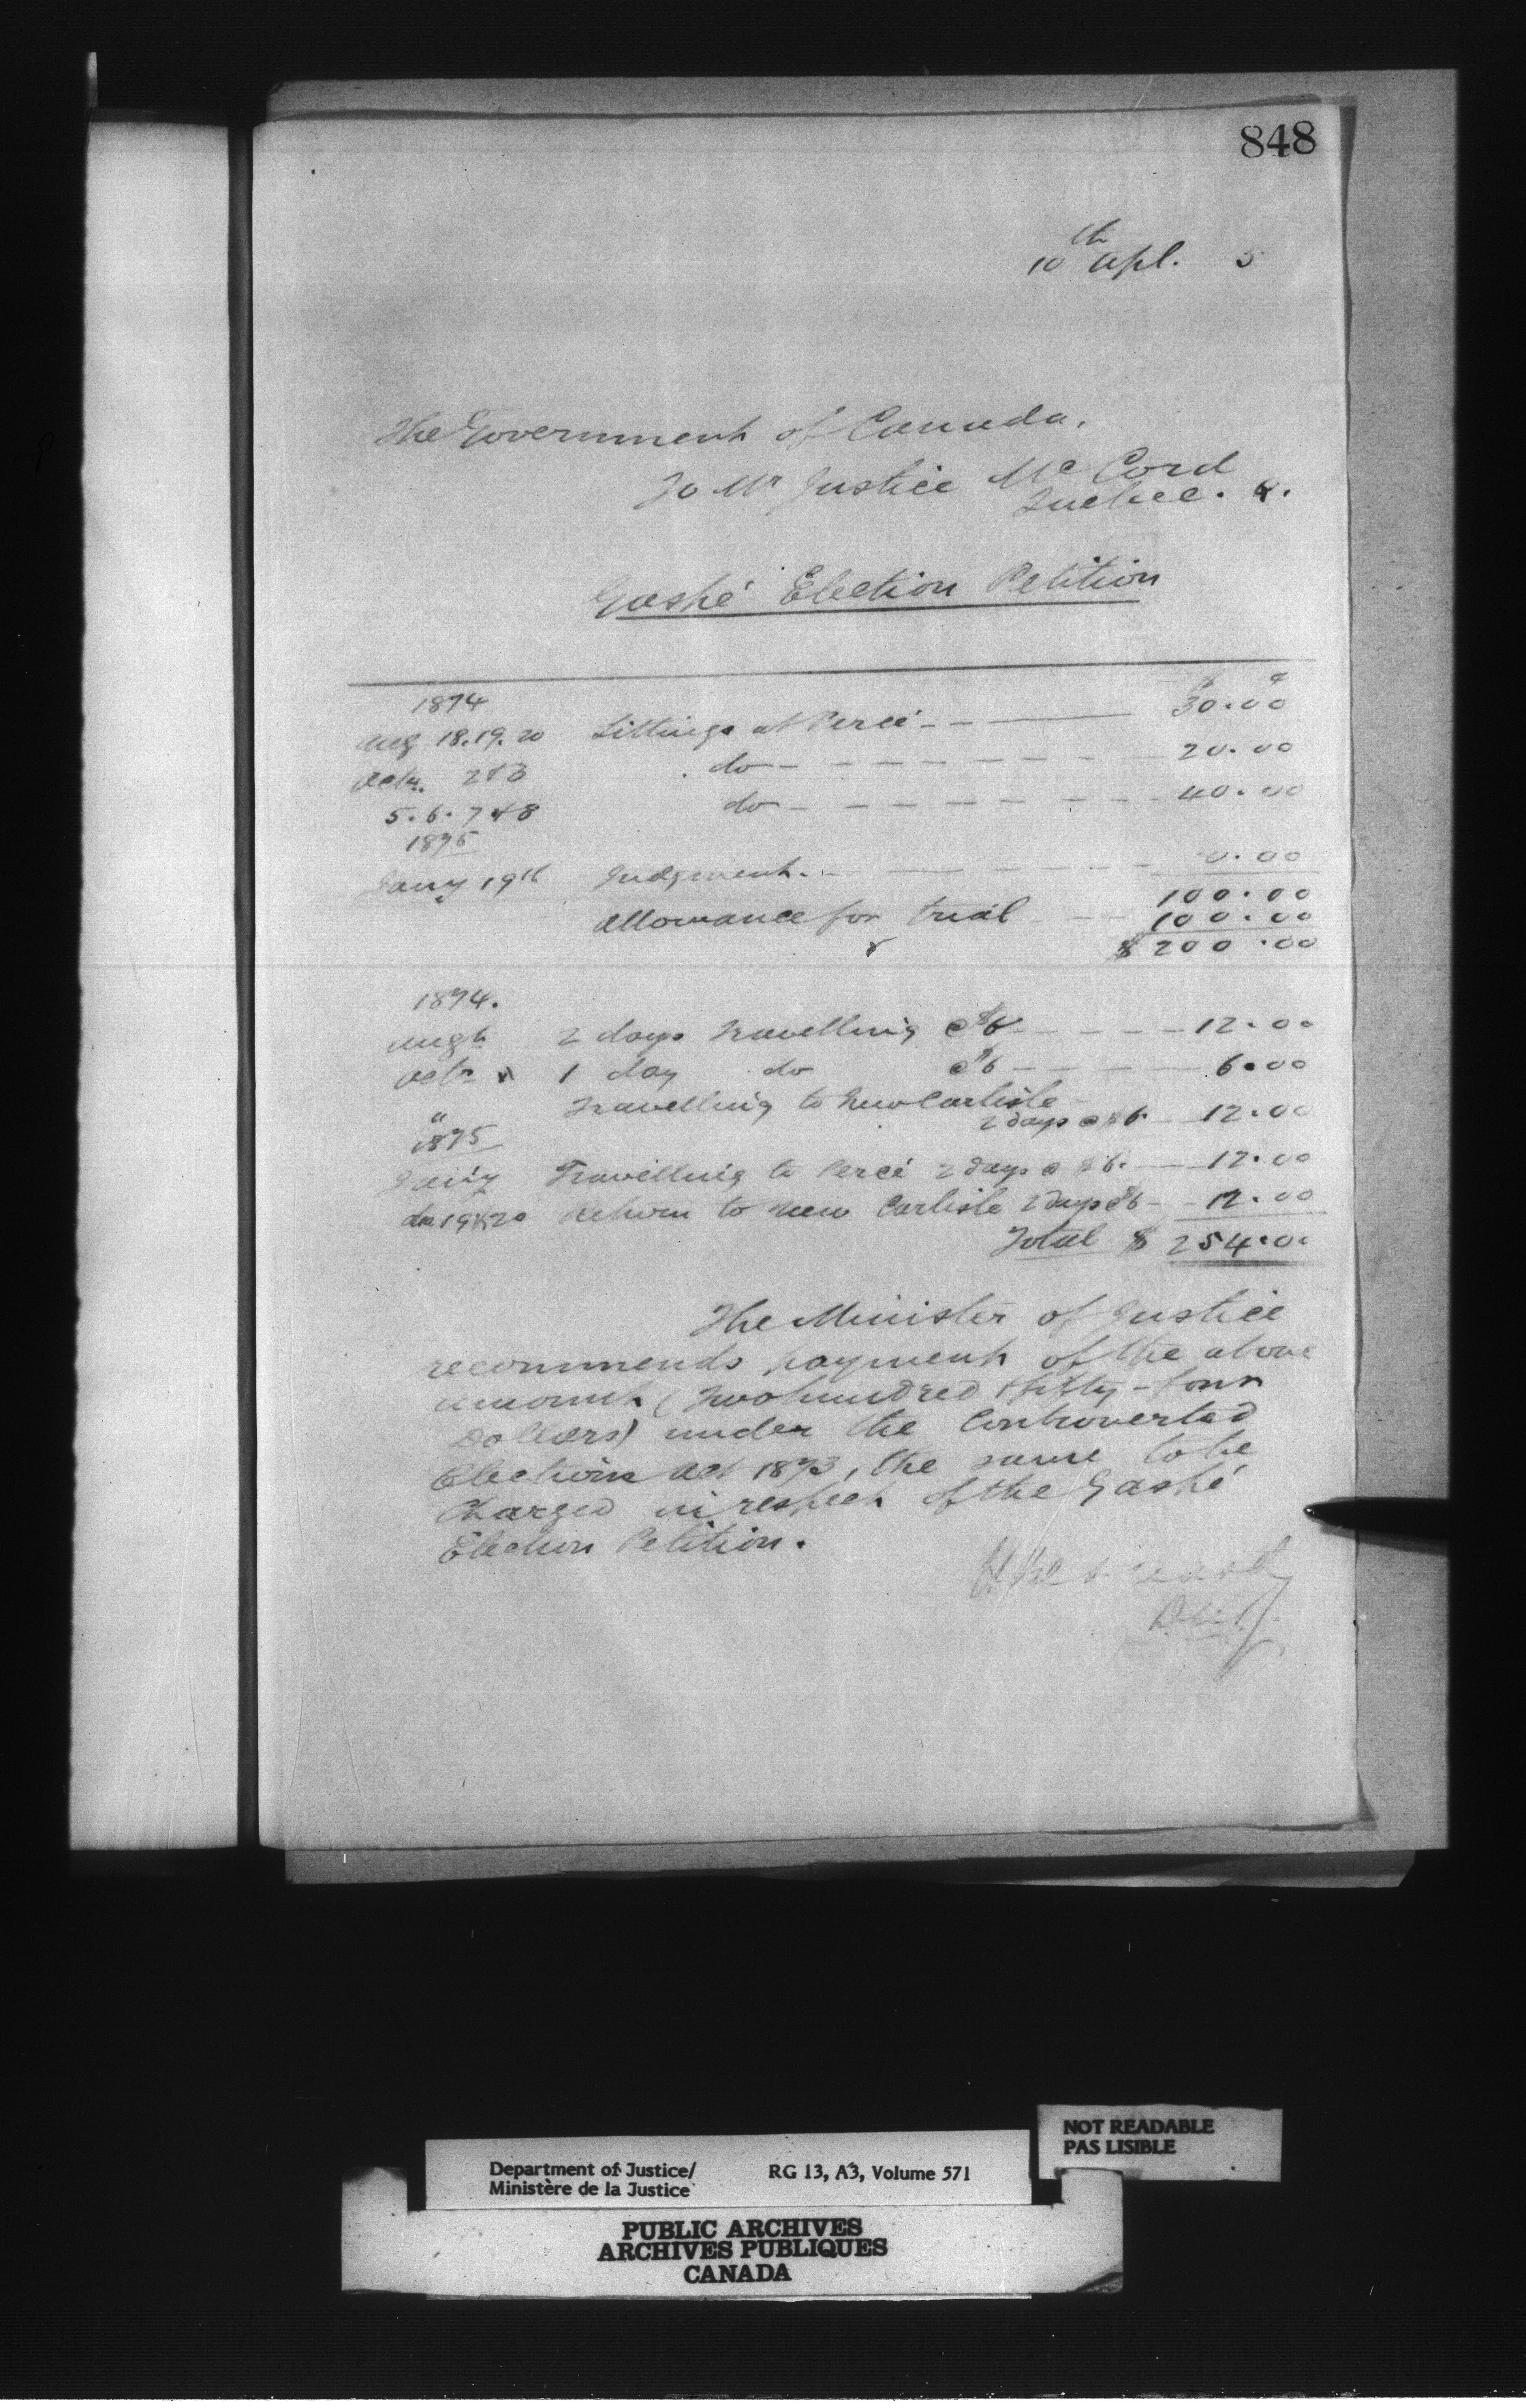 848
10th Apl. 5
The Government of Canada,
To Mr Justice McCord
Quebec. Q.
Gaspé Election Petition
1874 $ c
Aug 18.19.20 Sittings at Percé - - 30.00
Octr. 2 & 3 do - - - - - - - 20.00
5. 6. 7 & 8 do - - - - - - - 40.00
1875
Jany 19th Judgment. - - - - - 0.00
100.00
Allowance for trial - - 100.00
$ 200.00
1874.
Augt 2 days Travelling @ $6 - - - - 12.00
Octr " 1 day do @ $6 - - - - 6.00
" Travelling to New Carlisle
2 days @ $6. - 12.00
1875
Jany Travelling to Percé 2 days @ $6. - 12.00
do 19 & 20 Return to New Carlisle 2 days @ $6 - - 12.00
Total $ 254.00
The Minister of Justice
recommends payment of the above
amount (Two hundred & fifty-four
Dollars) under the Controverted
Elections Act 1873, the same to be
Charged in respect of the Gaspé
Election Petition.
Department of Justice/
Ministère de la Justice
RG 13, A3, Volume 571
NOT READABLE
PAS LISIBLE
PUBLIC ARCHIVES
ARCHIVES PUBLIQUES
CANADA